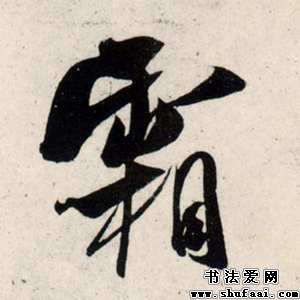 霜
书法爱网
www.shufaai.com